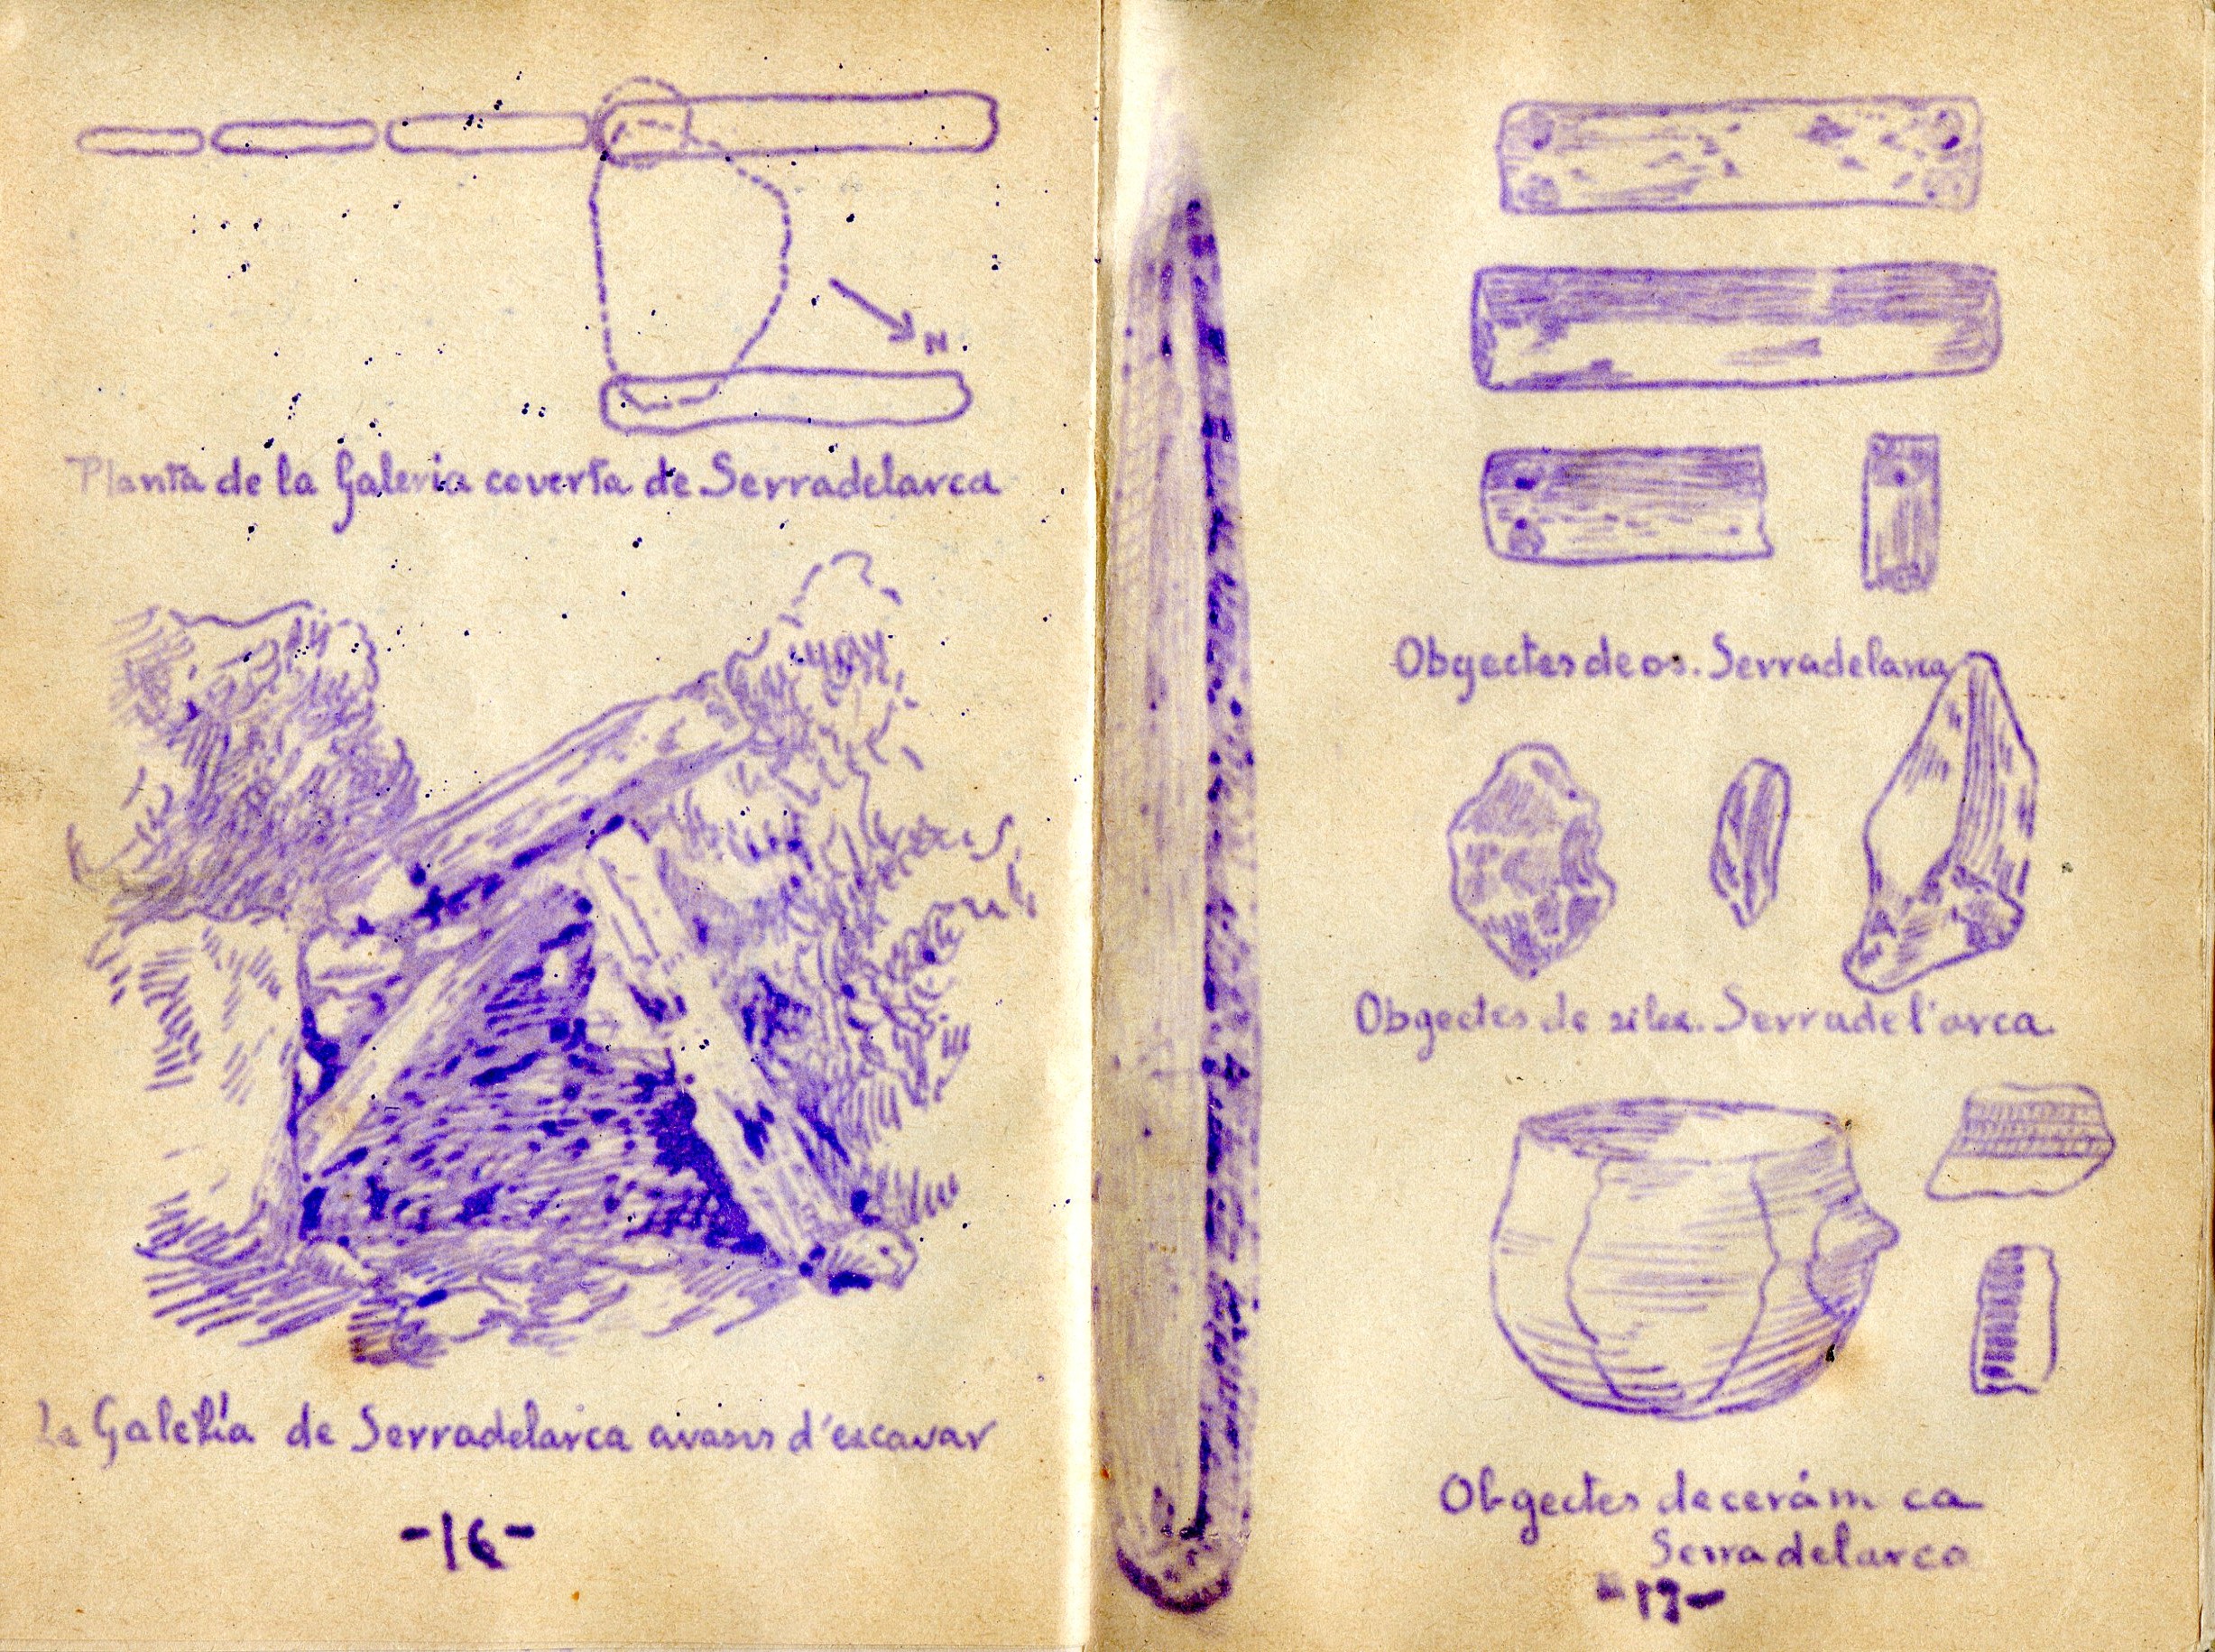 N.
Planta de la Galeria coverta de Serradelarca
La Galería de Serradelarca avans d'escavar
-16-
Obgectes de os. Serradelarca
Obgectes de silex. Serradel'arca.
Obgectes de cerámica
Serradelarca
-17-